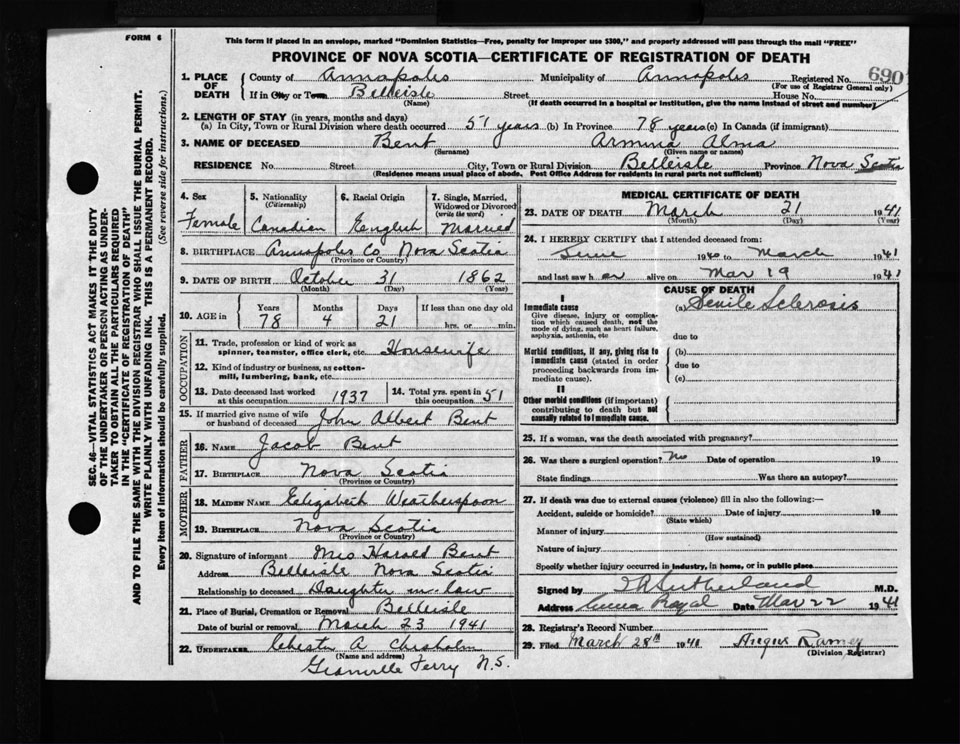 FORM 6
This form if placed in an envelope, marked "Dominion Statistics—Free, penalty for improper use $300," and properly addressed will pass through the mail "FREE"
PROVINCE OF NOVA SCOTIA—CERTIFICATE OF REGISTRATION OF DEATH
1. PLACE OF DEATH County of Annapolis Municipality of Annapolis Registered No. 690
(For use of Registrar General only)
If in City or Town Belleisle Street House No.
(Name) (If death occurred in a hospital or institution, give the name instead of street and number)
2. LENGTH OF STAY (in years, months and days)
(a) In City, Town or Rural Division where death occurred 51 years (b) In Province 78 years (c) In Canada (if immigrant)
3. NAME OF DECEASED Bent Armina Alma
(Surname) (Given name or names)
RESIDENCE No. Street City, Town or Rural Division Belleisle Province Nova Scotia
(Residence means usual place of abode. Post Office Address for residents in rural parts not sufficient)
4. Sex Female
5. Nationality (Citizenship) Canadian
6. Racial Origin English
7. Single, Married, Widowed or Divorced (write the word) Married
8. BIRTHPLACE Annapolis Co Nova Scotia
(Province or Country)
9. DATE OF BIRTH October 31 1862
(Month) (Day) (Year)
10. AGE in Years 78 Months 4 Days 21 If less than one day old hrs. or min.
OCCUPATION
11. Trade, profession or kind of work as spinner, teamster, office clerk, etc. Housewife
12. Kind of industry or business, as cotton-mill, lumbering, bank, etc.
13. Date deceased last worked at this occupation 1937
14. Total yrs. spent in this occupation 51
15. If married give name of wife or husband of deceased John Albert Bent
FATHER
16. NAME Jacob Bent
17. BIRTHPLACE Nova Scotia
(Province or Country)
MOTHER
18. MAIDEN NAME Elizabeth Weatherspoon
19. BIRTHPLACE Nova Scotia
(Province or Country)
20. Signature of informant Mrs Harold Bent
Address Belleisle Nova Scotia
Relationship to deceased Daughter in law
21. Place of Burial, Cremation or Removal Belleisle
Date of burial or removal March 23 1941
22. UNDERTAKER A Chisholm
(Name and address)
Granville Ferry N.S.
MEDICAL CERTIFICATE OF DEATH
23. DATE OF DEATH March 21 1941
(Month) (Day) (Year)
24. I HEREBY CERTIFY that I attended deceased from:
June 1940 to March 1941
and last saw h er alive on Mar 19 1941
CAUSE OF DEATH
I
Immediate cause
Give disease, injury or complication which caused death, not the mode of dying, such as heart failure, asphyxia, asthenia, etc
(a) Senile Sclerosis
due to
Morbid conditions, if any, giving rise to immediate cause (stated in order proceeding backwards from immediate cause).
(b)
due to
(c)
II
Other morbid conditions (if important) contributing to death but not causally related to immediate cause.
25. If a woman, was the death associated with pregnancy?
26. Was there a surgical operation? No Date of operation 19
State findings Was there an autopsy?
27. If death was due to external causes (violence) fill in also the following:—
Accident, suicide or homicide? Date of injury 19
(State which)
Manner of injury
(How sustained)
Nature of injury
Specify whether injury occurred in industry, in home, or in public place
Signed by Sutherland M.D.
Address Anna Royal Date Mar 22 1941
28. Registrar's Record Number
29. Filed March 28th 1941 Angus Ramey
(Division Registrar)
SEC. 46—VITAL STATISTICS ACT MAKES IT THE DUTY
OF THE UNDERTAKER OR PERSON ACTING AS UNDER-
TAKER TO OBTAIN ALL THE PARTICULARS REQUIRED
IN THE "CERTIFICATE OF REGISTRATION OF DEATH"
AND TO FILE THE SAME WITH THE DIVISION REGISTRAR WHO SHALL ISSUE THE BURIAL PERMIT.
WRITE PLAINLY WITH UNFADING INK. THIS IS A PERMANENT RECORD.
Every item of information should be carefully supplied. (See reverse side for instructions.)